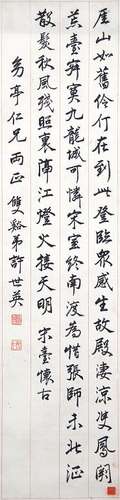 厓山如舊伶仃在到此登臨衆感生故殿淒涼雙鳳闕
荒臺寂寞九龍城可憐宋室終南渡爲惜張師未北征
散髮秋風殘照裏隔江燈火接天明 宋臺懷古
勞亭仁兄雨正 雙谿弟許世英